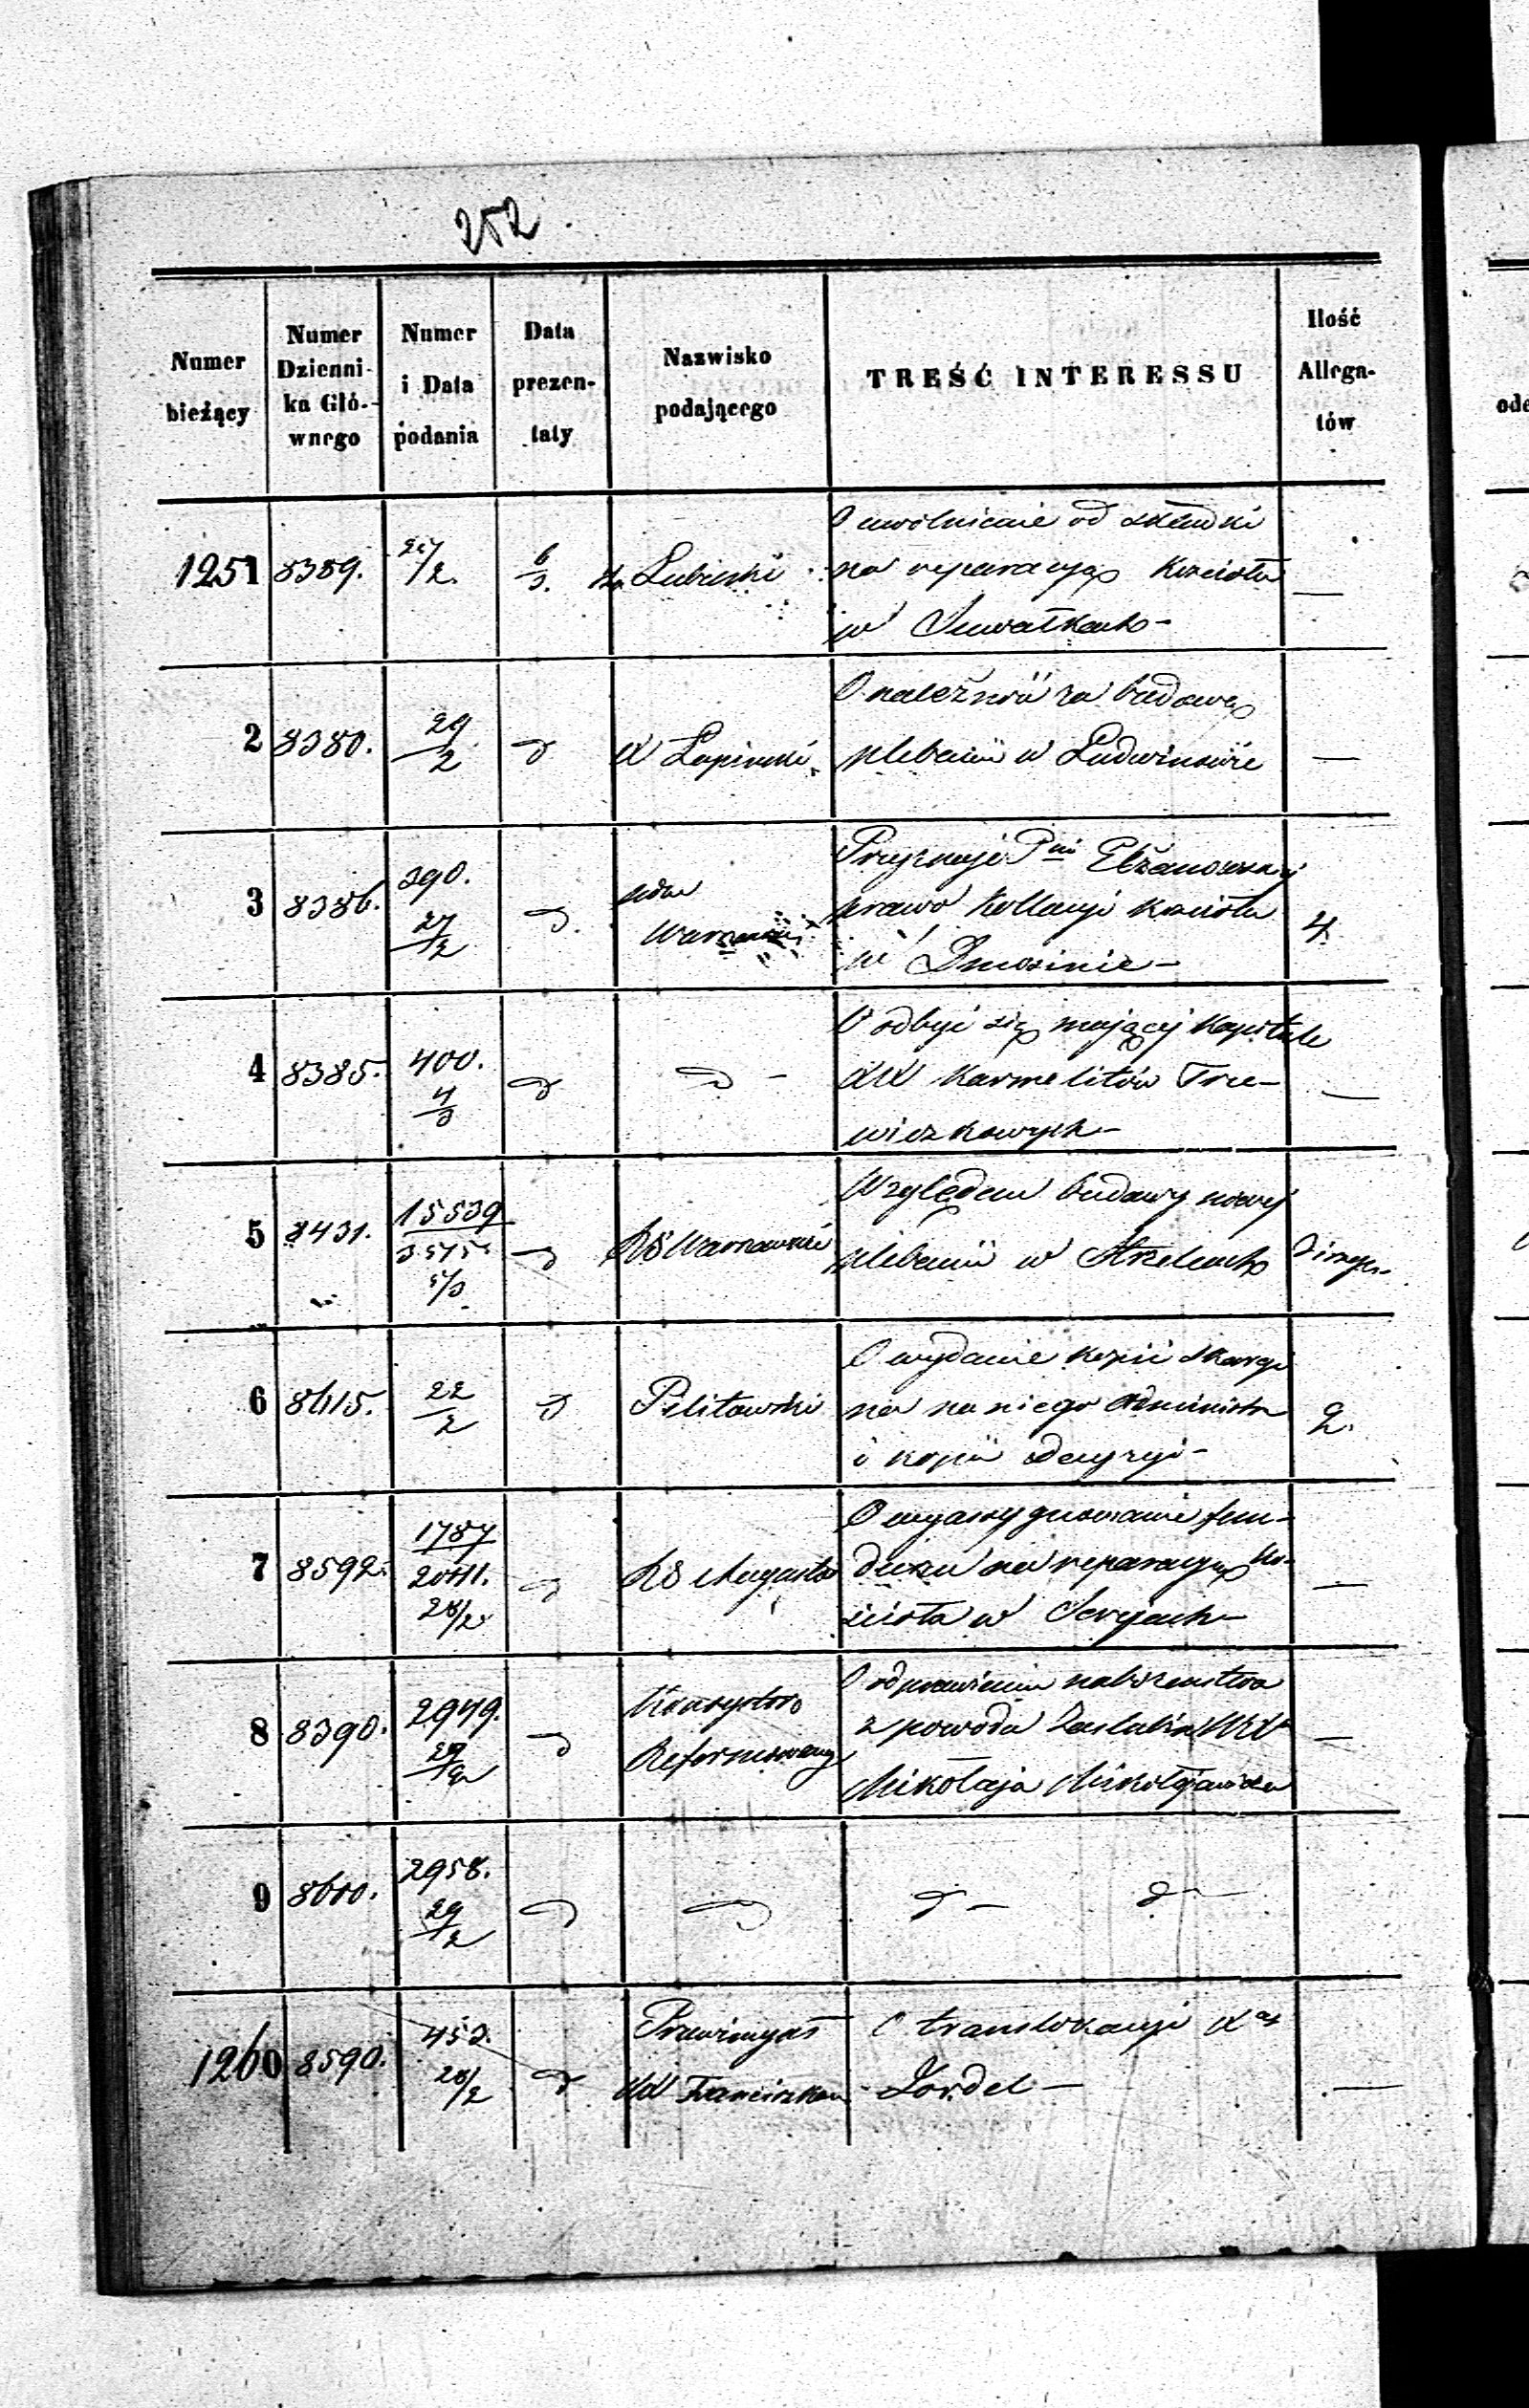 252.
Numer bieżący
Numer Dzienni-ka Głó-wnego
Numer i Data podania
Data prezen-taty
Nazwisko podającego
TREŚĆ INTERESSU
Ilość Allega-tów
1251 8389. 27/2. 6/3. Hr. Lubieński
O uwolnienie od składki
na reparacyą Kościoła
w Suwałkach —
2 8380. 29/2 d X Łapiński
O należność za budowę
plebanii w Ludwinowie —
3 8386. 390. 27/2 d. Adm Warszawski
Przyznaje Pni Elżanowskiej
prawo Kollacyi Kościoła 4.
w Dmosinie —
4 8385. 400. 4/3 d d —
O odbyć się mającej Kapitule
XX Karmelitów Trze-
wiczkowych — —
5 8431. 15539/3575 5/3 d RG Warszawski
Względem budowy nowej
plebanii w Strzelcach
6 8615. 22/2 d Pilitowski
O wydanie kopii skargi
na niego 2.
i kopii decyzyi —
7 8592. 1787/2041. 28/2 d RG Augustow
O wyassygnowanie fun-
duszu na reparacyą Ko-
ścioła w Serejach — —
8 8390. 2949. 29/2 d Konsystorz Reformowany
O odprawieniu nabożeństwa
z powodu Zaślubin WX
Mikołaja Mikołajewicza —
9 8600. 2958. 29/2 d d d — d —
1260 8590. 453. 28/2 d Prowincyał XX Franciszkan
O translokacyi Xa
Lordel — —